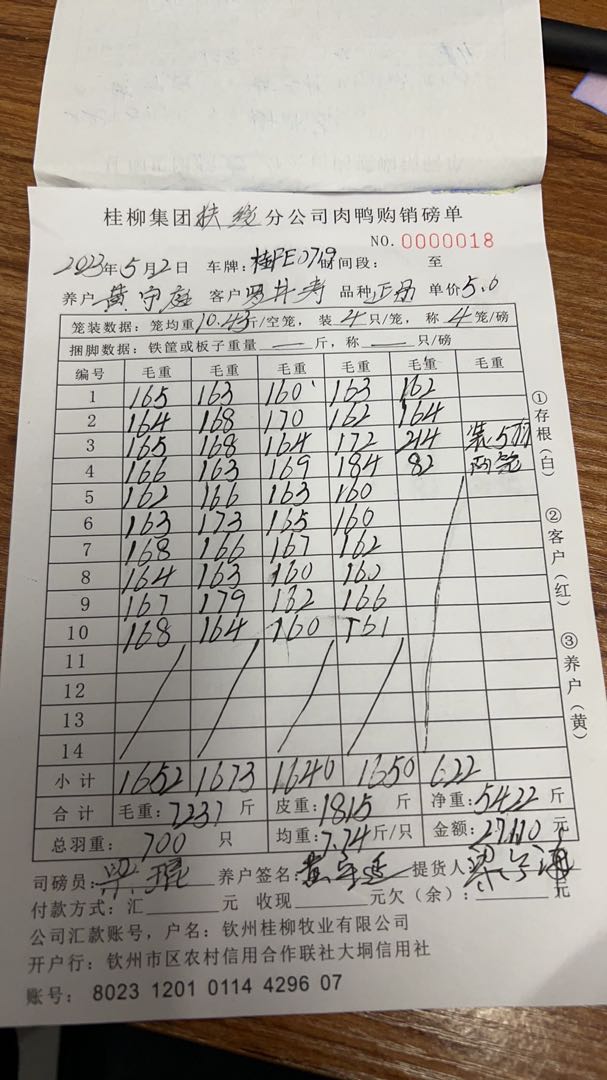 桂柳集团扶绥分公司肉鸭购销磅单
NO. 0000018
2023年5月2日 车牌:桂FE0719 时间段: 至
养户 黄守庭 客户 品种 正丹 单价5.0
笼装数据:笼均重10.43斤/空笼,装4只/笼,称4笼/磅
捆脚数据:铁筐或板子重量—斤,称—只/磅
编号 毛重 毛重 毛重 毛重 毛重 毛重
1 165 163 160 163 162
2 164 168 170 162 164
3 165 168 164 172 214 装5羽
4 166 163 169 184 82 两笼
5 162 166 163 160
6 163 173 165 160
7 168 166 167 162
8 164 163 160 160
9 167 179 162 166
10 168 164 160 161
11
12
13
14
小计 1652 1673 1640 1650 622
合计 毛重:7237斤 皮重:1815斤 净重:5422斤
总羽重:700只 均重:7.74斤/只 金额:27110元
司磅员:梁琨 养户签名:黄守廷 提货人:
付款方式:汇 元 收现 元欠(余): 元
公司汇款账号,户名:钦州桂柳牧业有限公司
开户行:钦州市区农村信用合作联社大垌信用社
账号:8023 1201 0114 4296 07
①存根(白)
②客户(红)
③养户(黄)